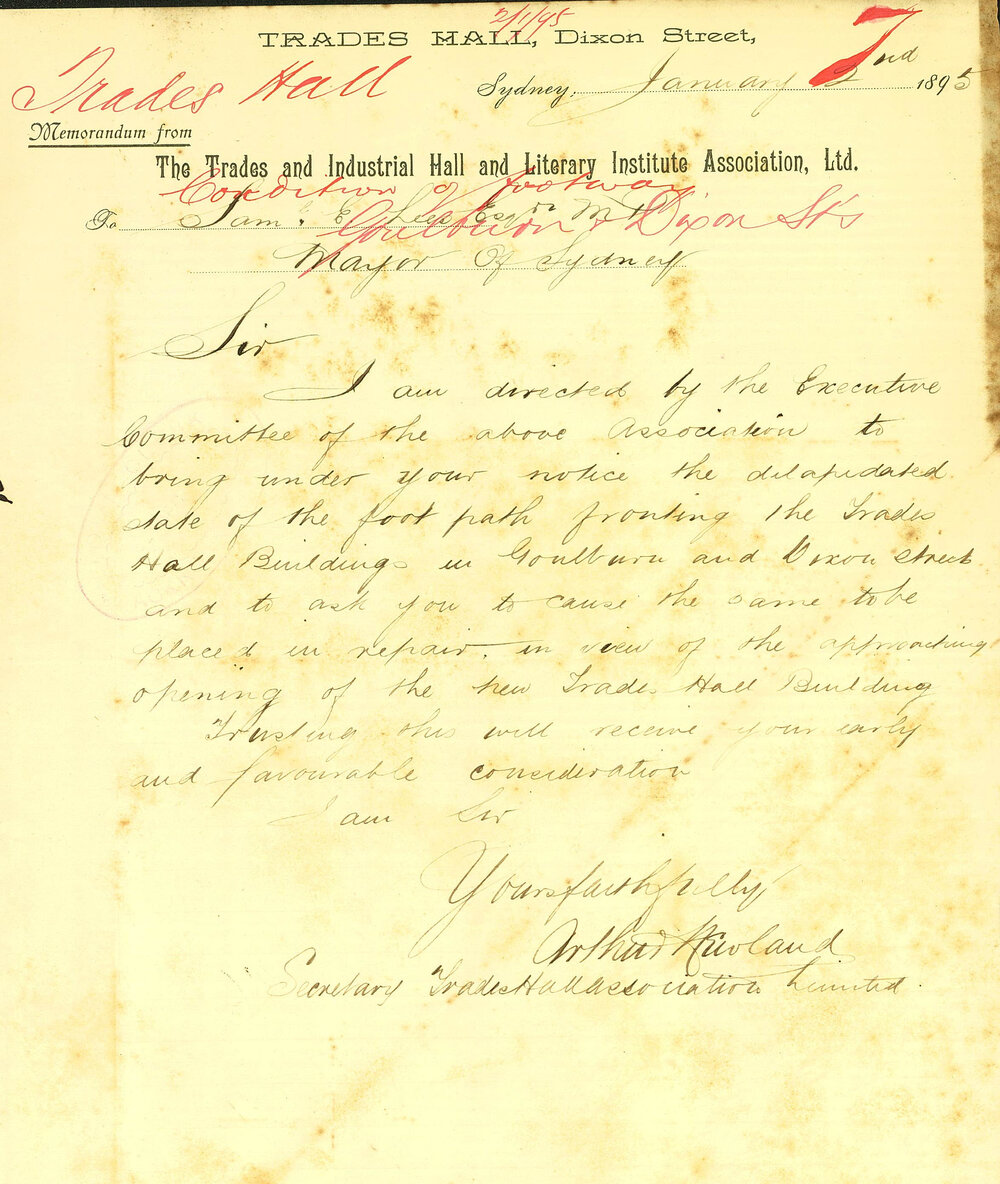 2/1/95
TRADES HALL, Dixon Street,
Trades Hall
Sydney, January 2nd 1895
Memorandum from
The Trades and Industrial Hall and Literary Institute Association, Ltd.
Condition of footway
To Sam. E. Lees Esqre M.P.
Goulburn & Dixon Sts
Mayor Of Sydney
Sir
I am directed by the Executive
Committee of the above Association to
bring under your notice the dilapidated
state of the foot path fronting the Trades
Hall Buildings in Goulburn and Dixon Street
and to ask you to cause the same to be
placed in repair. in view of the approaching
opening of the new Trades Hall Building
Trusting this will receive your early
and favourable consideration
I am Sir
Yours faithfully
Arthur
Secretary Trades Hall Association Limited.